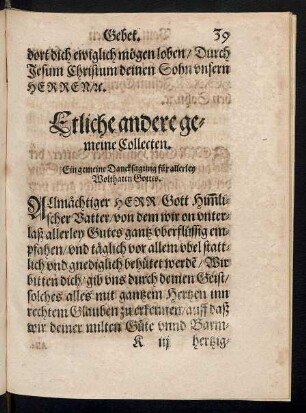 Gebet. 39
dort dich ewiglich mögen loben / Durch
Jesum Christum deinen Sohn vnsern
HERREN / ꝛc.
Etliche andere ge-
meine Collecten.
Ein gemeine Dancksagung für allerley
Wolthaten Gottes.
ALlmächtiger HERR Gott Him̃li-
scher Vatter / von dem wir on vnter-
laß allerley Gutes gantz vberflüssig ein-
pfahen / vnd täglich vor allem vbel statt-
lich vnd gnediglich behütet werdẽ / Wir
bitten dich / gib vns durch deinen Geist /
solches alles mit gantzem Hertzen inn
rechtem Glauben zu erkennen / auff daß
wir deiner milten Güte vnnd Barm-
K iij hertzig-